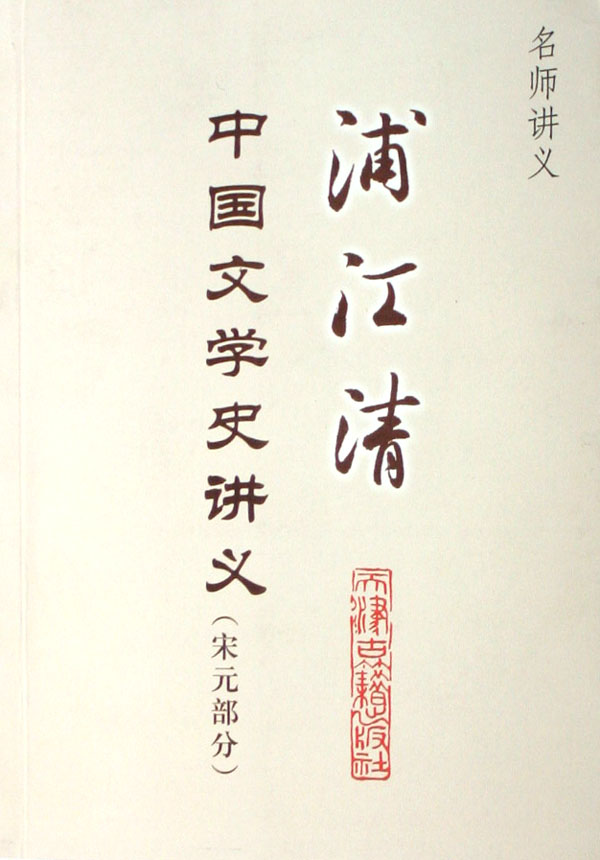 名师讲义
浦江清
中国文学史讲义
（宋元部分）
天津古籍出版社